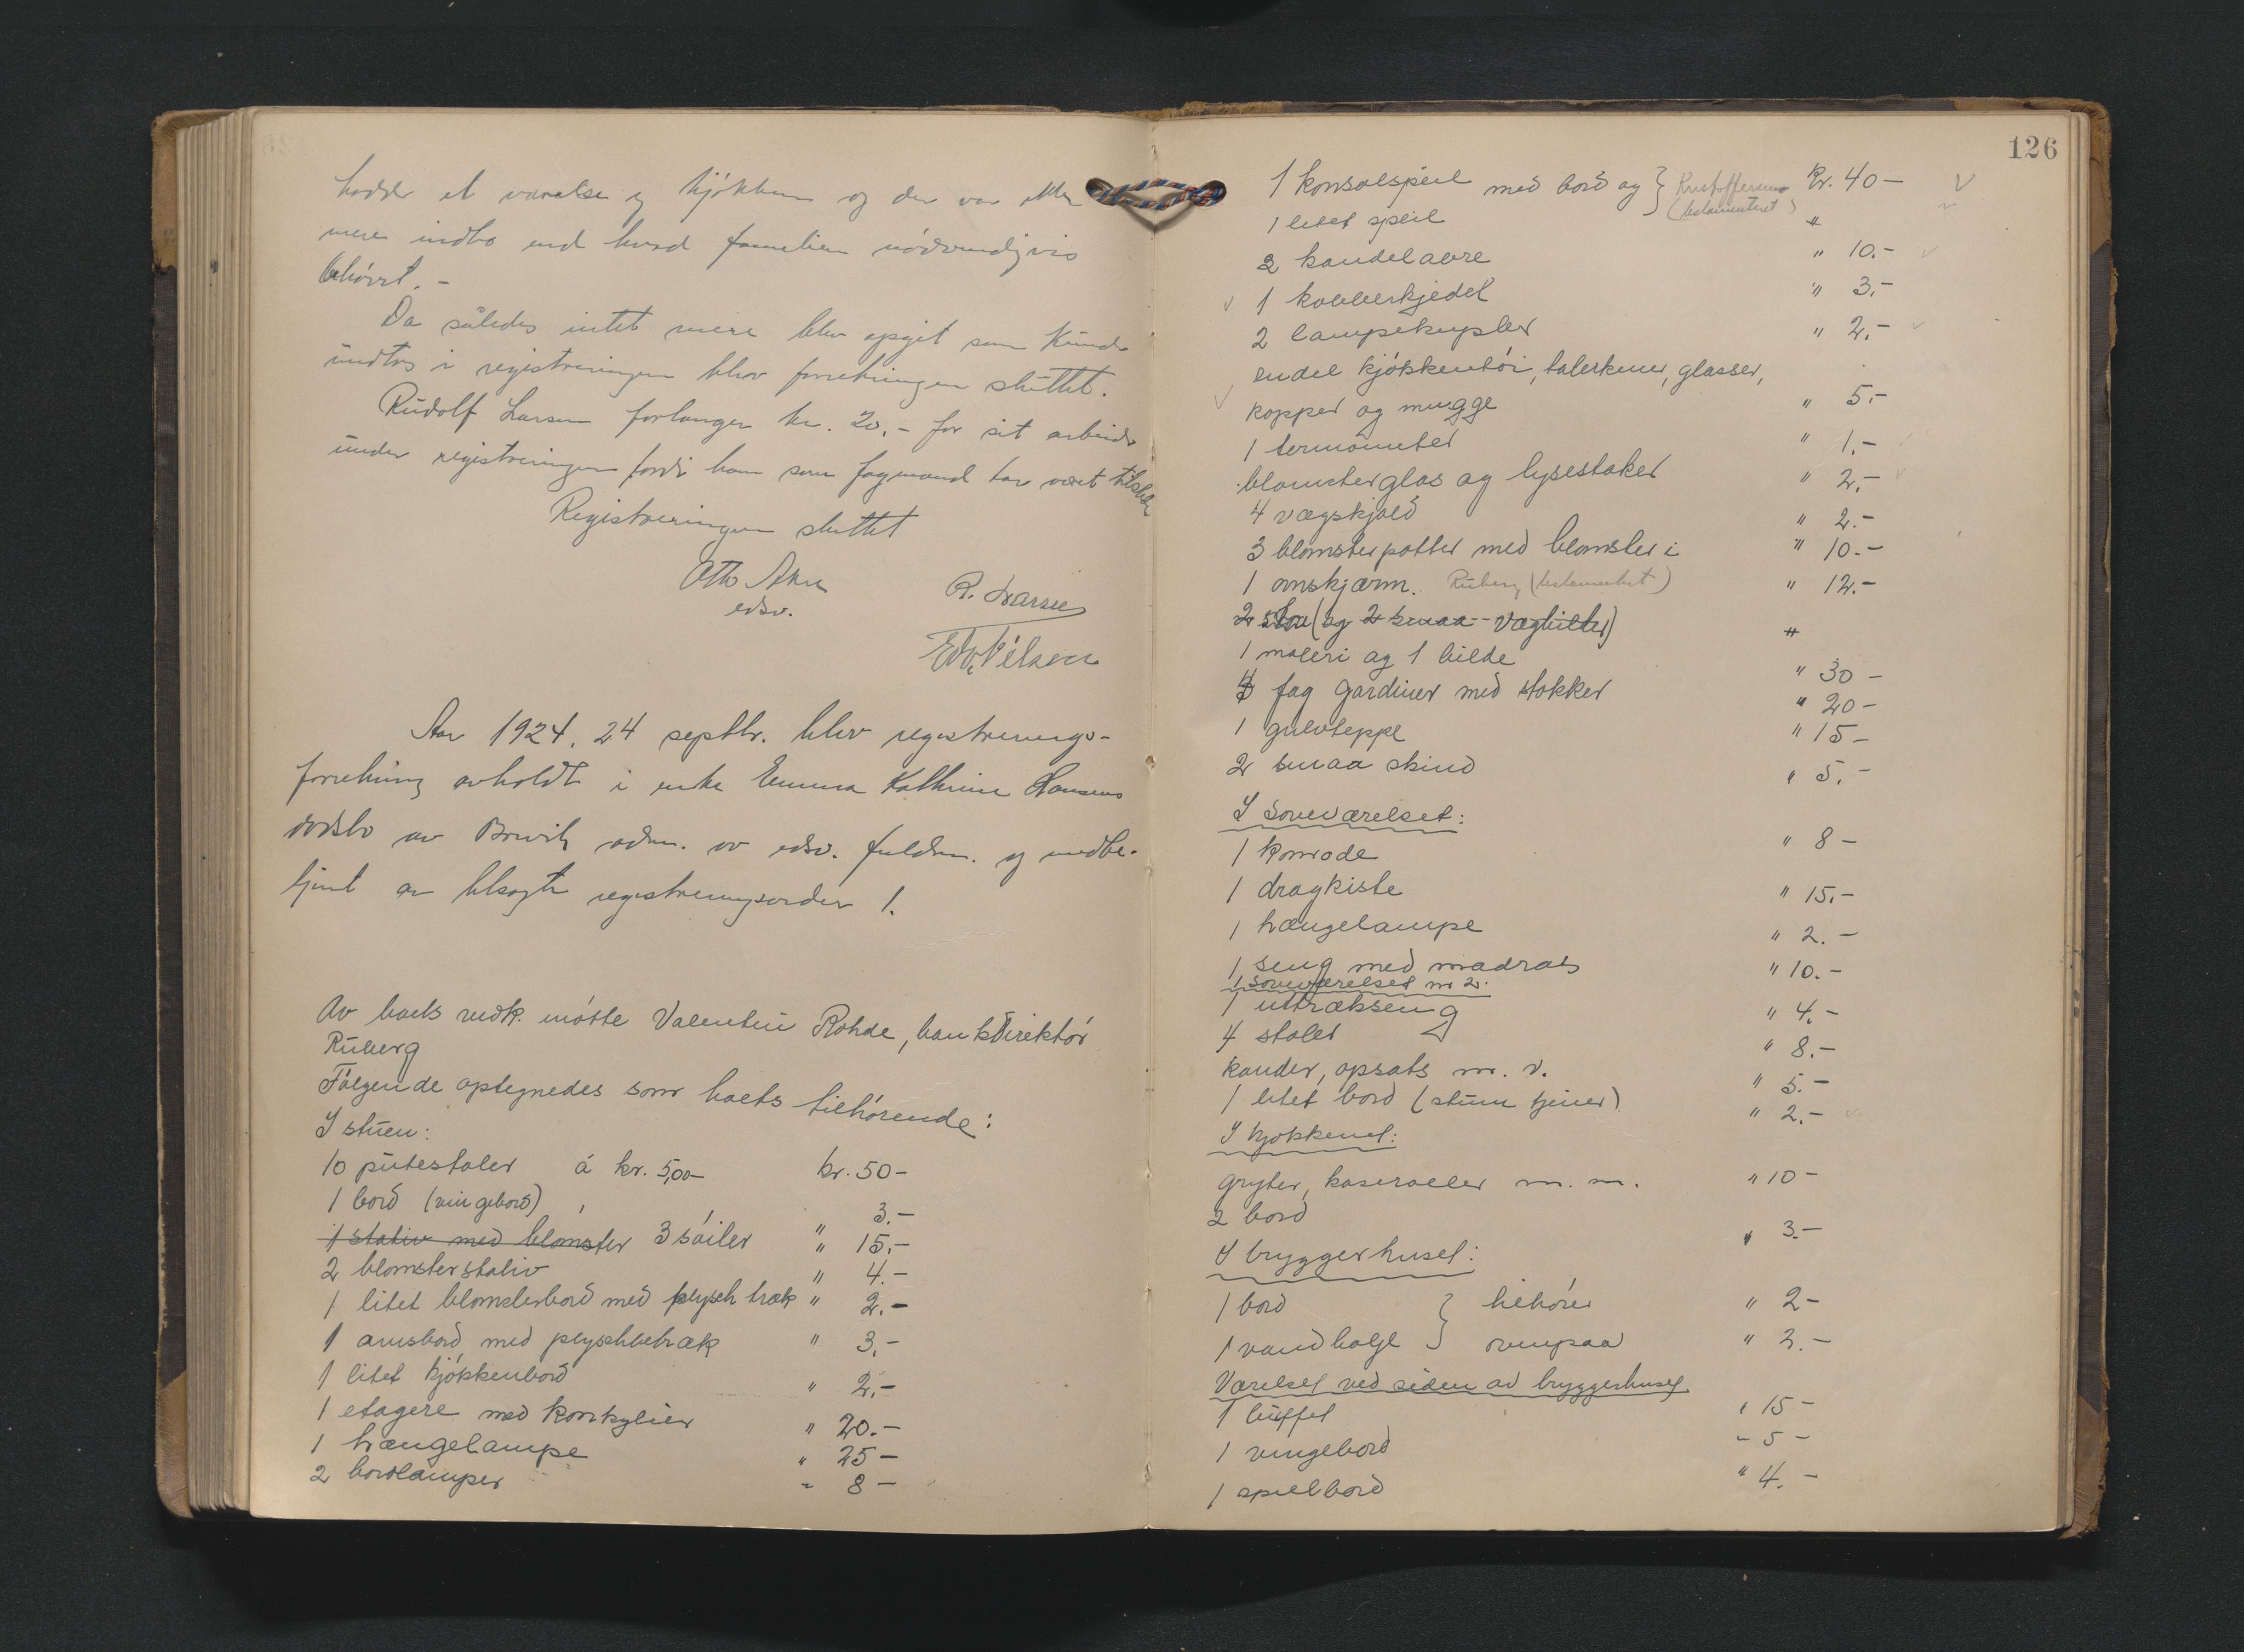 hadde et værelse og kjøkken og der var ikke
mere indbo end hvad familien nødvendigvis
behøvet. -
Da således intet mere blev opgit som kunde
indtas i registreringen blev forretningen sluttet.
Rudolf Larsen forlanger kr. 20,- for sit arbeide
under registreringen fordi han som fagmand har været
Registreringen sluttet
Otto Aker
edsv.
R. Larsen
Edv. Nilsen
Aar 1924, 24 septbr. blev registrerings-
forretning avholdt i enke Emma Kathrine Hansens
dødsbo av Brevik adm. av edsv. fuldm. og
av registreringsorder 1.
Av boets vedk. møtte Valentin Rohde, bankdirektør
Ruberg
Følgende optegnedes som boets tilhørende:
I stuen:
10 putestoler á kr. 5,00 kr. 50-
1 bord (vingebord) 3.-
1 stativ med blomster 3 søiler " 15.-
2 blomsterstativ " 4.-
1 litet blomsterbord med plysch træk " 2.-
1 bord med plyschbetræk " 3.-
1 litet kjøkkenbord " 2.-
1 etagere med konkylier " 20.-
1 hængelampe " 25-
2 bordlamper " 8-
126
1 konsolspeil med bord og } Kristoffersen Kr. 40-
1 litet speil (testamenteret) "
2 kandelabre " 10.-
1 kobberkjedel " 3.-
2 lampekupler " 2.-
endel kjøkkentøi, talerkener, glasser,
kopper og mugge " 5.-
1 termometer " 1.-
blomsterglas og lysestaker " 2.-
4 vægskjold " 2.-
3 blomsterpotter med blomster i " 10.-
1 ovnskjærm. Ruberg (testamentert) " 12.-
2 (og 2 smaa vægbilder) "
1 maleri og 1 bilde " 30-
4 fag gardiner med stokker " 20-
1 gulvteppe " 15-
2 smaa skind " 5.-
I soveværelset:
1 komode " 8-
1 dragkiste " 15.-
1 hængelampe " 2.-
1 seng med madrats " 10.-
I soveværelset nr 2.
1 uttrækseng " 4.-
4 stoler " 8.-
kander, opsats m. v. " 5.-
1 litet bord (stum tjener) " 2.-
I kjøkkenet:
gryter, kaseroller m. m. " 10-
2 bord " 3.-
I bryggerhuset:
1 bord } tilhører " 2-
1 vandbalje } ovenpaa " 2.-
Værelset ved siden av bryggerhuset.
1 büffet " 15-
1 vingebord " 5-
1 spilbord " 4.-